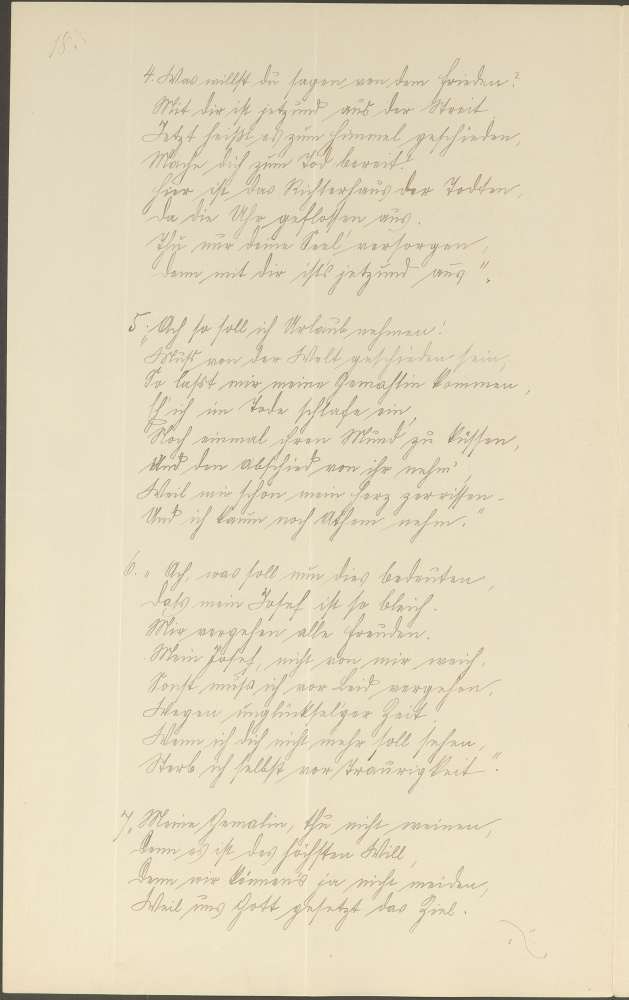 18
4. Was willst du sagen von dem Frieden?
Mit dir ist jetzund aus der Streit,
Jetzt heißt es zum Himmel geschieden,
Mache dich zum Tod bereit!
Hier ist das Richterhaus der Todten,
Da die Uhr geflossen aus.
Thu nur deine Seel' versorgen,
Denn mit dir ists jetzund aus".
5. „Ach so soll ich Urlaub nehmen!
Muß von der Welt geschieden sein,
So laßt mir meine Gemahlin kommen,
Eh' ich im Tode schlafe ein,
Noch einmal ihren Mund zu küssen,
Und den Abschied von ihr nehm',
Weil mir schon mein Herz zerrissen.
Und ich kaum noch Athem nehm."
6. „Ach, was soll nun dies bedeuten,
Daß mein Josef ist so bleich.
Mir vergehen alle Freuden.
Mein Josef, nicht von mir weich,
Sonst muß ich vor Leid vergehen,
Wegen unglücksel'ger Zeit,
Wenn ich dich nicht mehr soll sehen,
Sterb ich selbst vor Traurigkeit."
7. „Meine Gemalin, thu nicht weinen,
Denn es ist des Höchsten Will,
Denn wir können's ja nicht meiden,
Weil uns Gott gesetzt das Ziel.